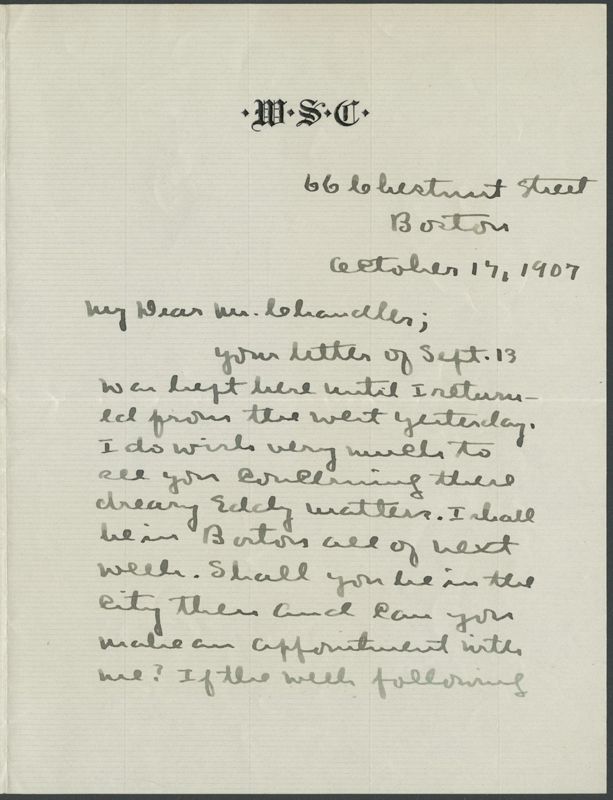 ·W·S·C·
66 Chestnut Street
Boston
October 17, 1907
My Dear Mr. Chandler;
Your letter of Sept. 13
was kept here until I return-
ed from the west yesterday.
I do wish very much to
see you concerning these
dreary Eddy matters. I shall
be in Boston all of next
week. Shall you be in the
city then and can you
make an appointment with
me? If the week following